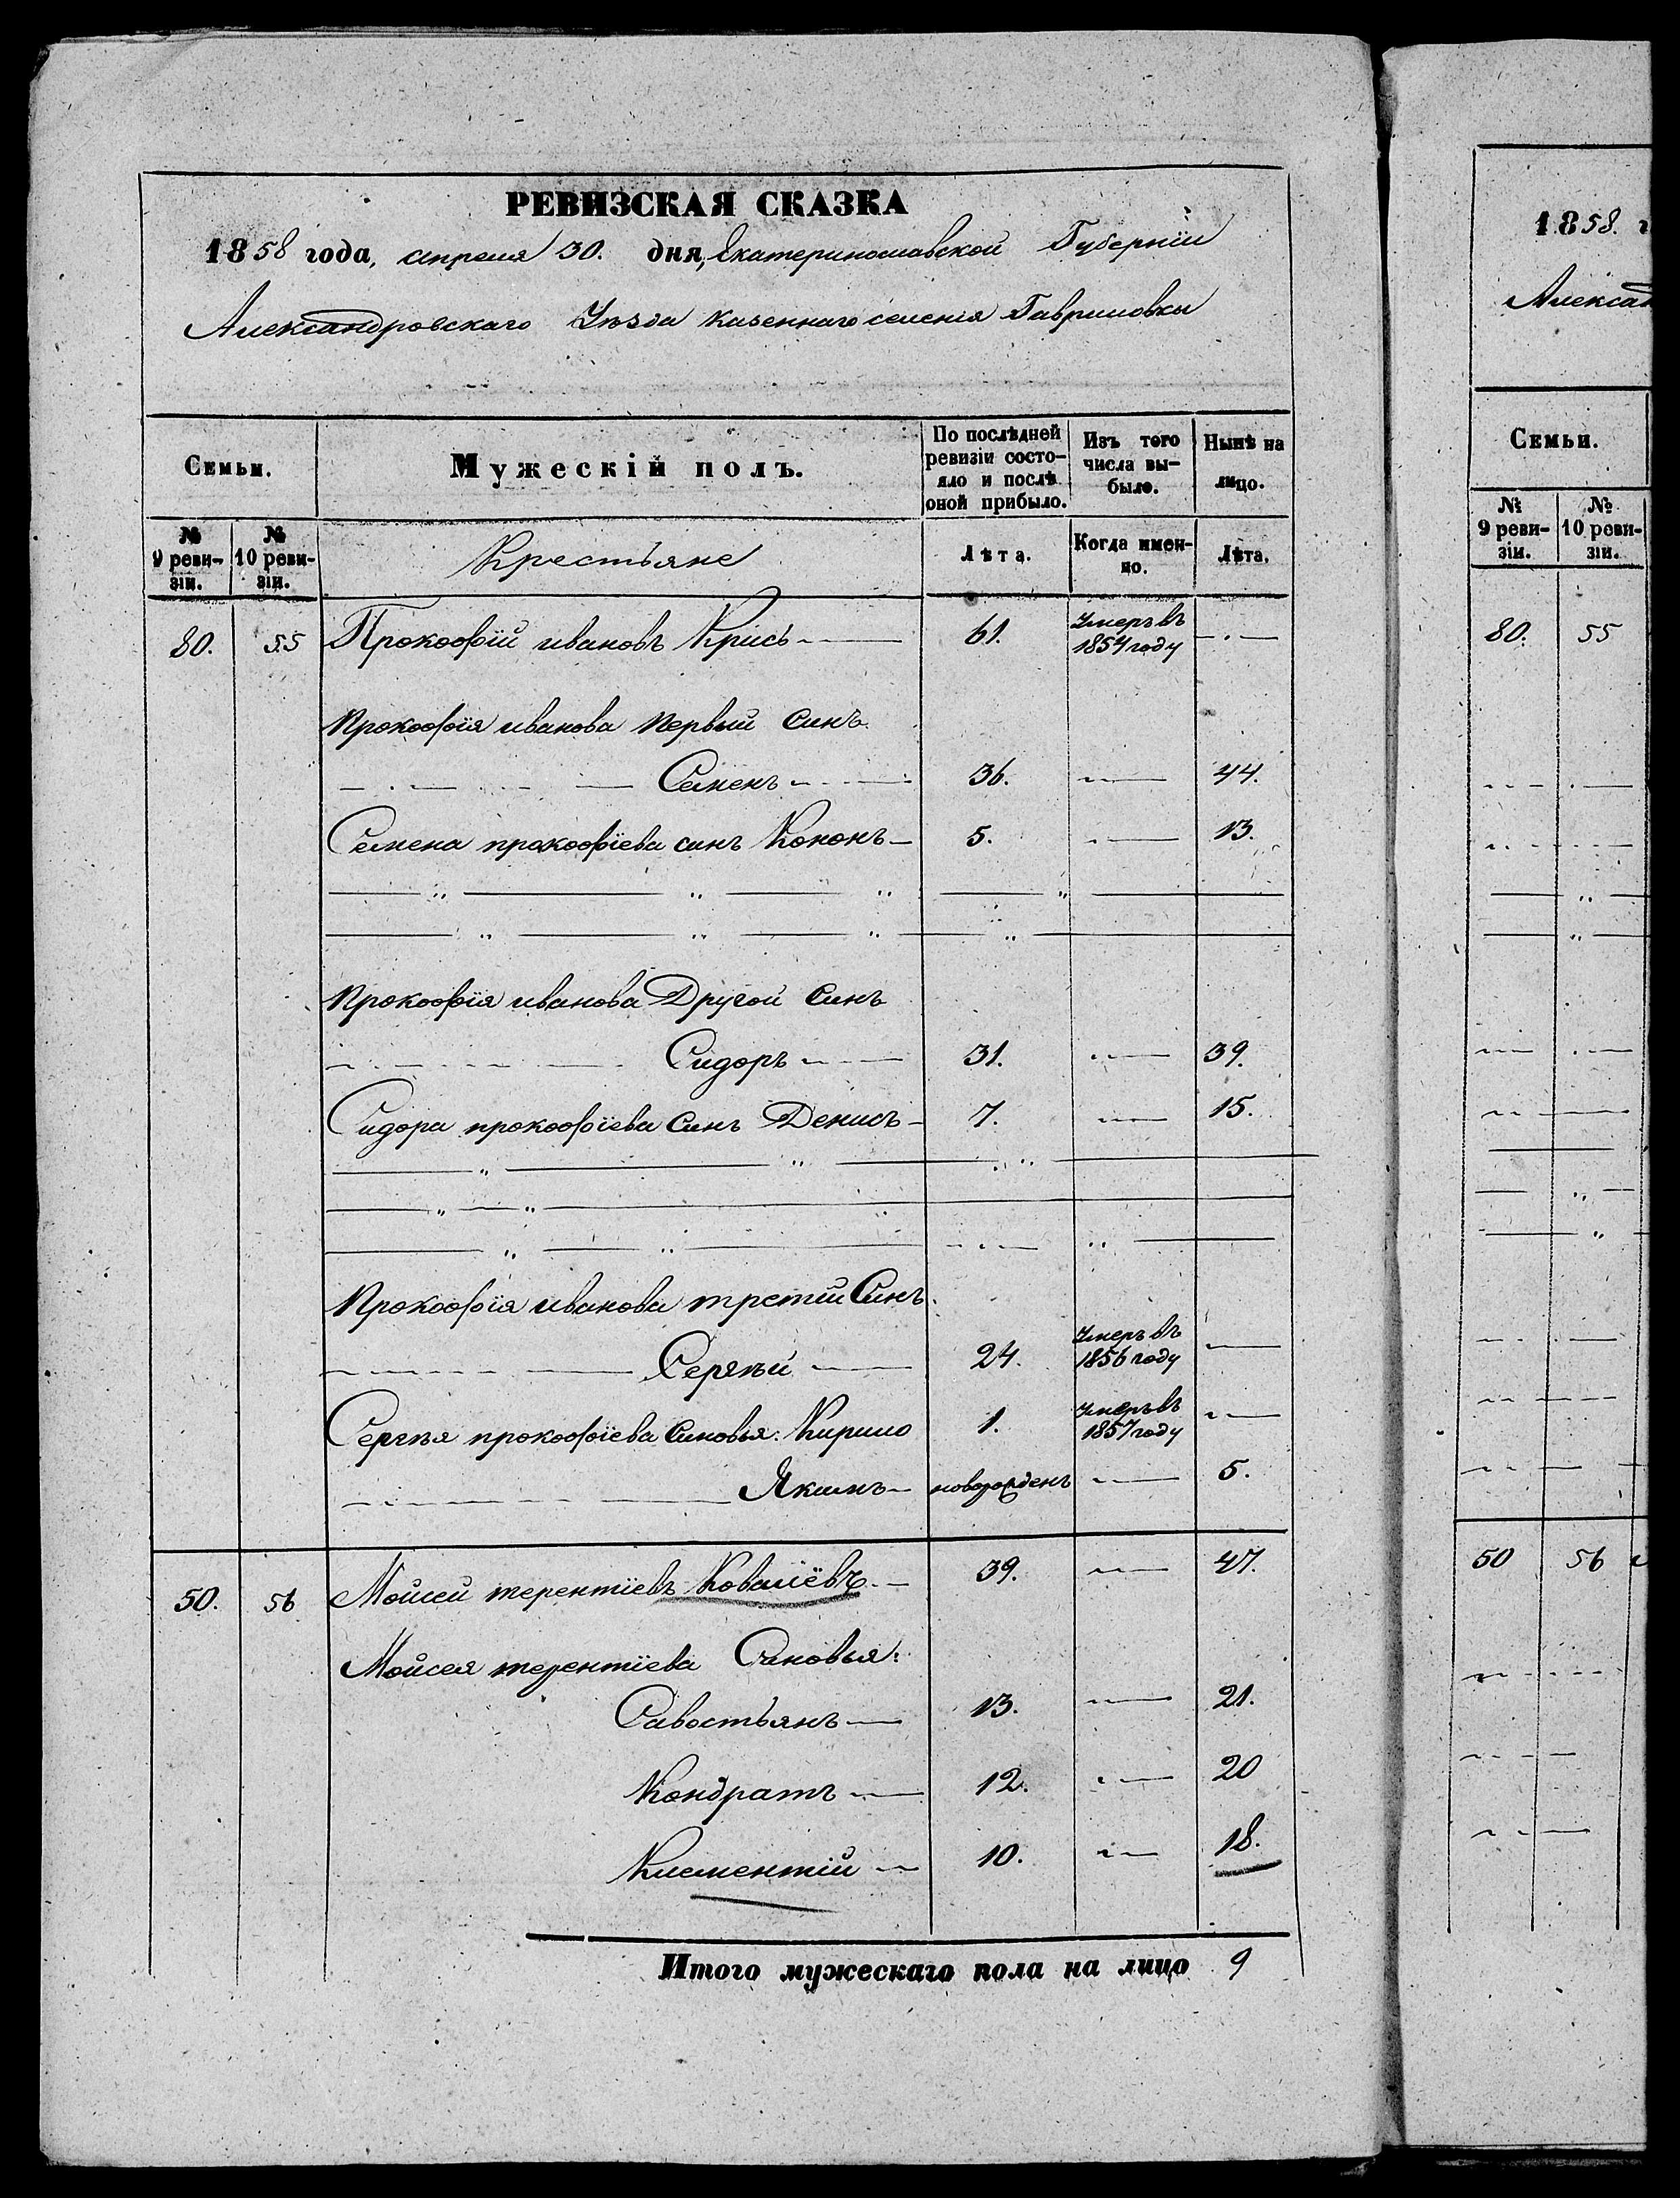 РЕВИЗСКАЯ СКАЗКА
1858 года, апреля 30. дня, Екатеринославской Губернии
Александровскаго Уезда казеннаго селения Гавриловки
Семьи.
Мужескій полъ.
По послѣдней ревизіи состо-яло и послѣ оной прибыло.
Изъ того числа вы-было.
Нынѣ на лицо.
№ 9 реви-зіи.
№ 10 реви-зіи.
Крестьяне
Лѣта.
Когда имен-но.
Лѣта.
80. 55 Прокофій ивановъ Крисъ 61. Умеръ въ 1854 году
Прокофія иванова Первый Синъ
Семенъ 36. 44.
Семена прокофіева синъ Кононъ 5. 13.
Прокофія иванова Другой Синъ
Сидоръ 31. 39.
Сидора прокофіева Синъ Денисъ 7. 15.
Прокофія иванова третий Синъ
Сергѣй 24. Умеръ въ 1856 году
Сергѣя прокофіева Синовья: Кирило 1. Умеръ въ 1857 году
Якимъ новорожденъ 5.
50. 56 Мойсей терентіевъ Ковалёвъ 39. 47.
Мойсея терентіева Синовья:
Савостьянъ 13. 21.
Кондратъ 12. 20
Клементій 10. 18.
Итого мужескаго пола на лицо 9
1858. г
Алексан
Семьи.
№ 9 реви-зіи.
№ 10 реви-зіи.
80. 55
50 56